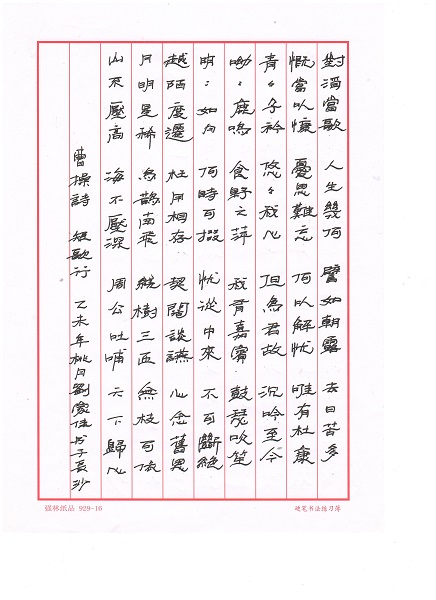 對酒當歌 人生幾何 譬如朝露 去日苦多
慨當以慷 憂思難忘 何以解忧 唯有杜康
青〻子衿 悠〻我心 但為君故 沉吟至今
呦〻鹿鳴 食野之苹 我有嘉賓 鼓瑟吹笙
明〻如月 何時可掇 忧從中來 不可斷絕
越陌度遷 枉用相存 契闊談讌 心念舊恩
月明星稀 烏鵲南飛 繞樹三匝 無枝可依
山不壓高 海不壓深 周公吐哺 天下歸心
曹操詩 短歌行 乙未年桃月劉家佳书于長沙
强林纸品 929-16
硬笔书法练习薄